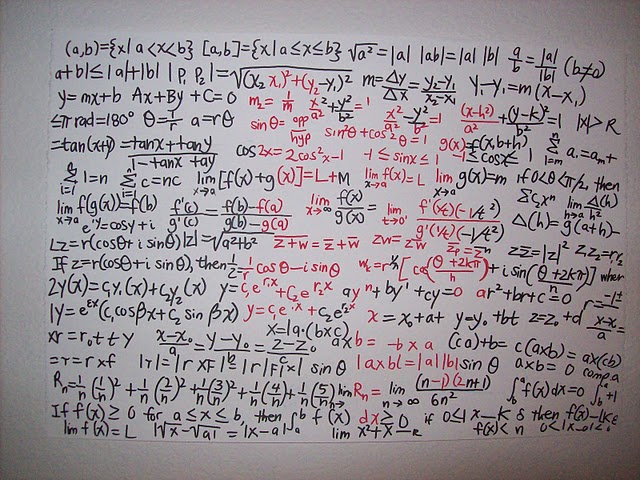 (a,b)={x| a<x<b} [a,b]={x| a≤x≤b} √a² = |a| |ab|=|a| |b| a/b = |a|/|b| (b≠o)
a+b|≤|a|+|b| |P₁ P₂|=√(x₂ x₁)²+(y₂-y₁)² m=Δy/Δx = y₂-y₁/x₂-x₁ y₁-y₁=m(x-x₁)
y=mx+b Ax+By+C=0 m₂= 1/m x²/a²+y²/b²=1 x²/a²-y²/b²=1 (x-h)²/a²+(y-k)²/b²=1 |x|>R
≤π rad=180° θ=1/r a=rθ sinθ= opp/hyp sin²θ+cos²θ=1 g(x)=f(x,b+h)
=tan(x+y)=tanx+tany/1-tanx+ay cos2x=2cos²x-1 -1≤sinx≤1 -1≤cosx≤1
Σ1=n Σc=nc lim x→a [f(x)+g(x)]=L+M lim x→a f(x)=L lim x→a g(x)=m if 0<θ<π/2, then
lim x→a f(g(x))=f(b) f'(c)/g'(c) = f(b)-f(a)/g(b)-g(a) lim x→∞ f(x)/g(x) = lim t→0 f'(1/t)(-1/t²)/g'(1/t)(-1/t²) Δ(h)=g(a+h)-
e^iy=cosy+i
Lz=r(cosθ+i sinθ)|z|=√a²+b² z+w=z+w zw=z w zz=|z|² z₁z₂=r₁r₂
If z=r(cosθ+i sinθ), then 1/z=1/r cosθ-i sinθ [cos(θ+2kπ/n)+i sin(θ+2kπ/n)] where
2y(x)=c₁y₁(x)+c₂y₂(x) y=c₁e^r₁x+c₂e^r₂x ay"+by'+cy=0 ar²+br+c=0
y=e^αx(c₁cosβx+c₂ sin βx) y=c₁e^rx+c₂e^2x x=x₀+at y=y₀+bt z=z₀+d
xr=r₀+ty x-x₀/a=y-y₀/b=z-z₀/c x=|a·(bxc) axb= -bxa (ca)+b= c(axb)=ax(cb)
|axb|=|a||b|sinθ axb= 0
Rₙ=1/n(1/n)²+1/n(2/n)²+1/n(3/n)²+1/n(4/n)+1/n(5/n) lim Rₙ= lim n→∞ (n-1)(2n+1)/6n² ∫f(x)dx=0
If f(x)≥0 for a≤x≤b, then ∫f(x) dx≥0 if 0≤|x-K δ then f(x)-|K
lim f(x)=L |√x-√a|=|x-a| lim x²+x f(x)<n